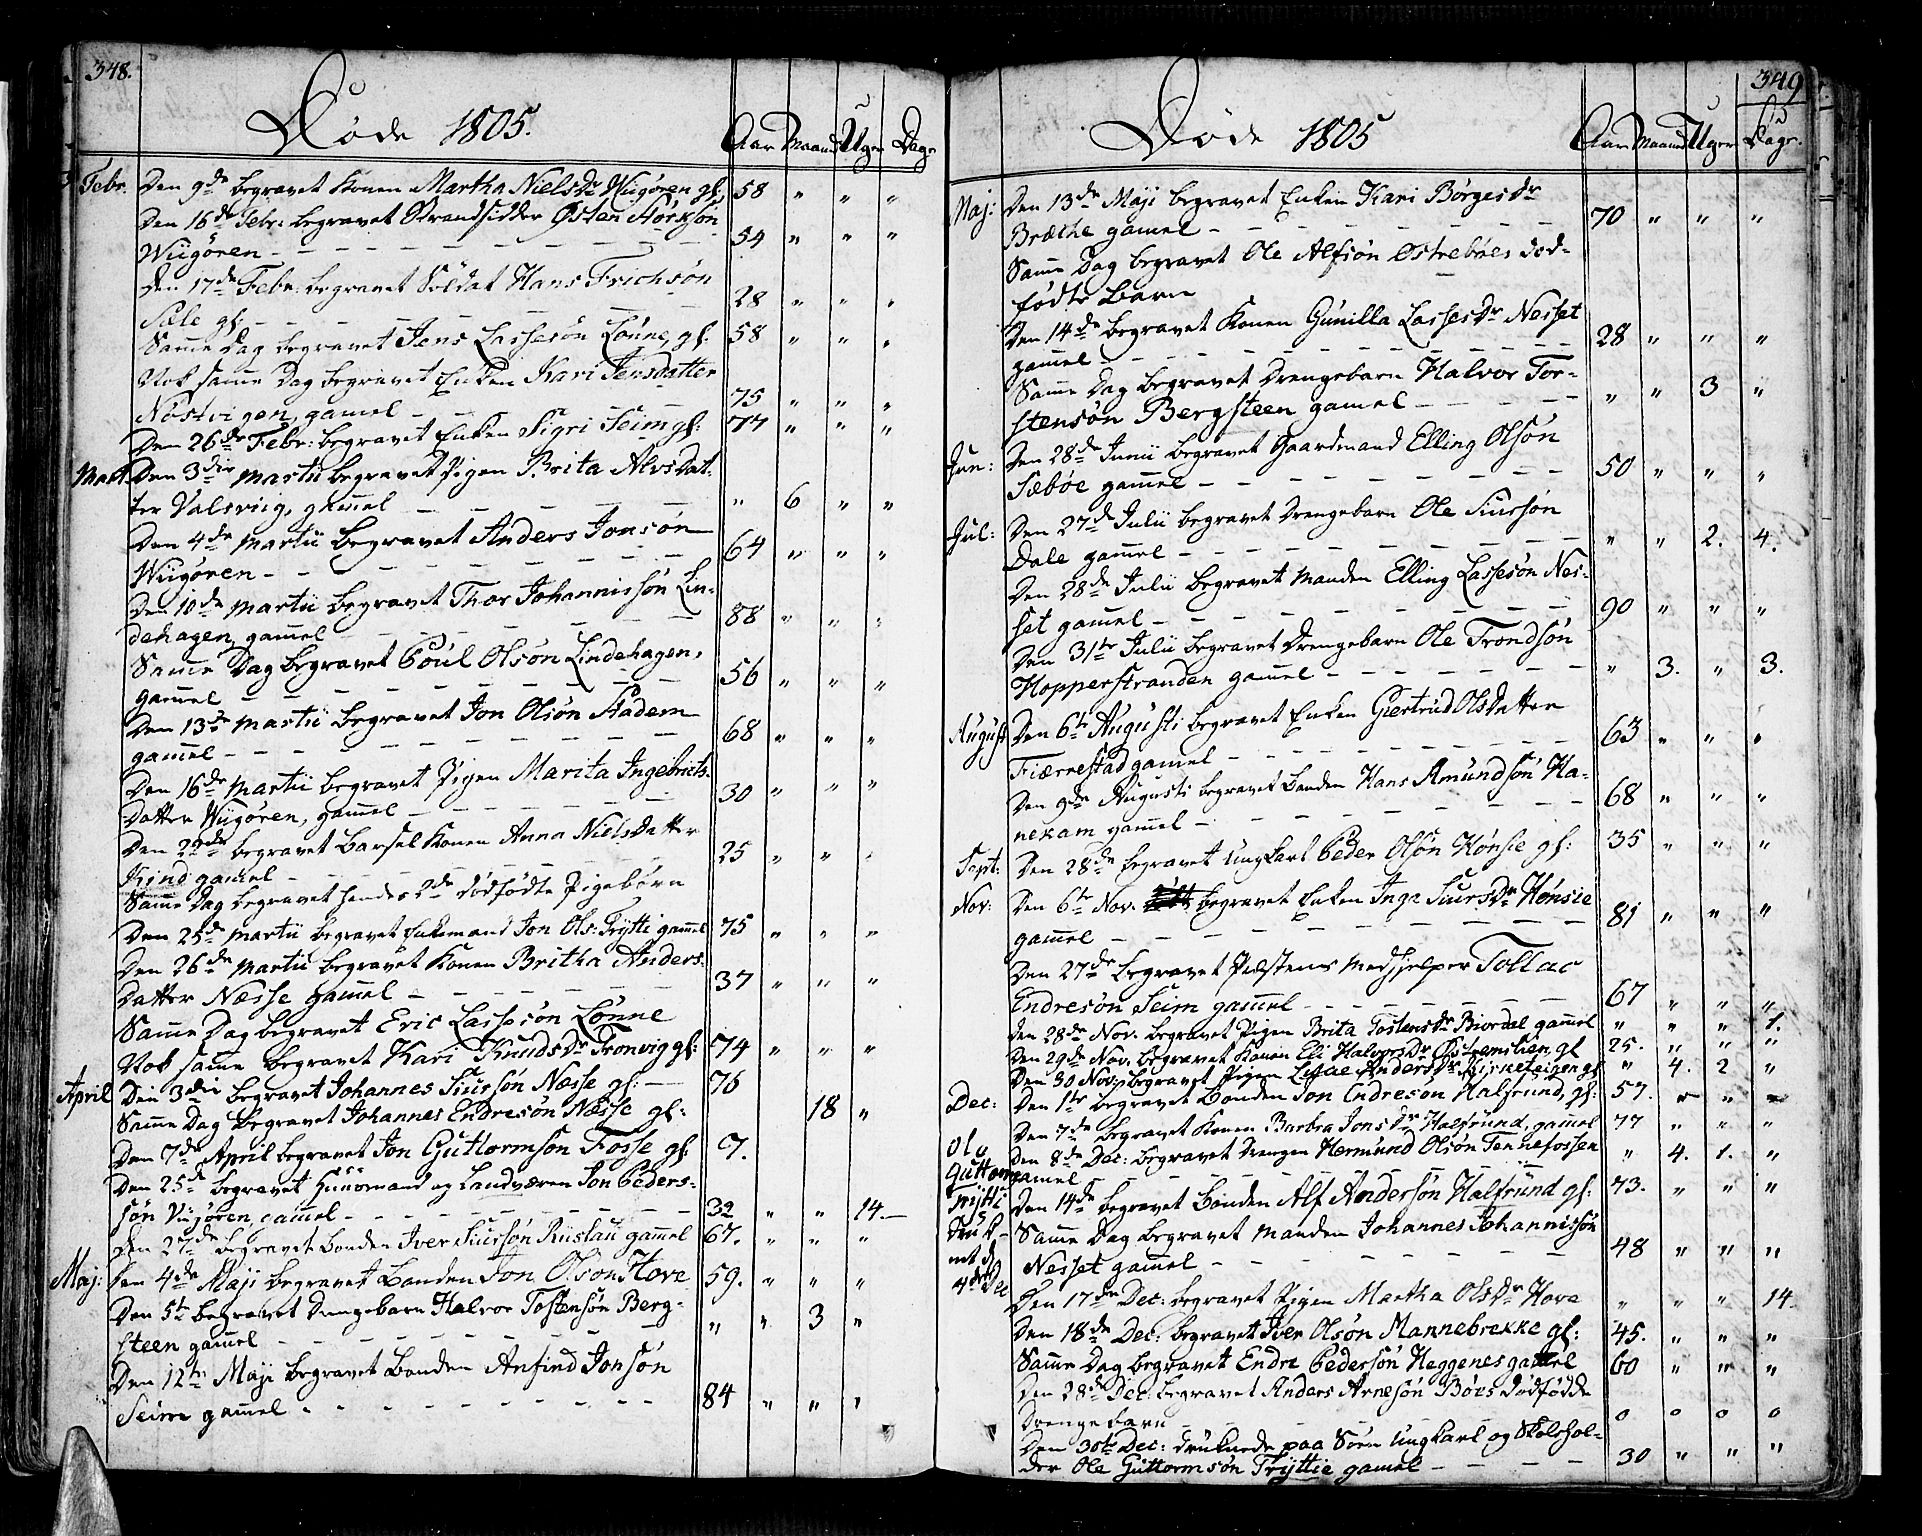 348.
Døde 1805.
Aar Maand Uger Dage
Febr. Den 9de begravet Konen Martha NielsDr Wiigøren gl: 58 " " "
Den 16de Febr: begravet Strandsidder Østen Størksøn
Wiigøren - 54 " " "
Den 17de Febr: begravet Soldat Hans Frichsøn
Sæle gl: - 28 " " "
Samme Dag begravet Jens Lassesøn Lønne, gl: 58 " " "
Nok samme Dag begravet Enken Kari Jensdatter
Nøstvigen, gamel - 75 " " "
Den 26de Febr: begravet Enken Sigri Seim gl: 77 " " "
Mart. Den 3die Martii begravet Pigen Brita AlvsDat-
ter Valsviig, gamel - " 6 " "
Den 4de Martii begravet Anders Jonsøn
Wiigøren - 64 " " "
Den 10de Martii begravet Thor Johannissøn Lin-
dehagen, gamel - 88 " " "
Samme Dag begravet Poul Olsøn Lindehagen,
gamel - 56 " " "
Den 13de Martii begravet Jon Olsøn Stadem
gamel - 68 " " "
Den 16de Martii begravet Pigen Marita Ingebrichts-
Datter Wiigøren, gamel - 30 " " "
Den 22de begravet Barsel Konen Anna NielsDatter
Hind gamel - 25 " " "
Samme Dag begravet hendes 2de dødfødte Pigebørn
Den 25de Martii begravet Enkemand Jon Ols: Tryttj gammel 75 " " "
Den 26de Martii begravet Konen Britha Anders-
Datter Næsse gamel - 37 " " "
Samme Dag begravet Eric Lassesøn Lønne
Nok samme begravet Kari KnudsDr Tronvig gl: 74 " " "
April Den 3die begravet Johannes Siursøn Næsse gl: - 76
Samme Dag begravet Johannes Endresøn Næsse gl: 18 "
Den 7de April begravet Jon Guttormsøn Fosse gl: 9.
Den 25de begravet Huusmand og Landværen Jon Peders-
søn Viigøren, gammel - 32 " " 14.-
Den 27de begravet Bonden Iver Siursøn Riislau gammel 67. " " "
Maj: Den 4de Maji begravet Bonden Jon Olson Hove 59. " " "
Den 5te begravet Drengebarn Halvor Tostensøn Berg-
steen gamel - " " 3 "
Den 12te Maji begravet Bonden Anfind Jonsøn
Seim gamel - 84 " " "
349
Døde 1805
Aar Maaned Uger Dage.
Maj: Den 13de Maji begravet Enken Kari BørgesDr
Bræche gamel - 70 " " "
Samme Dag begravet Ole Alfsøn Østrebøes død-
fødte Barn
Den 14de begravet Konen Gunilla LassesDr Nesset
gammel - 28 " " "
Samme Dag begravet Drengebarn Halvor Tor-
stensøn Bergsteen gamel - " " 3 "
Jun: Den 28de Junii begravet Gaardmand Elling Olsøn
Sæbøe gammel - 50 " " "
Jul: Den 27de Julii begravet Drengebarn Ole Siursøn
Dale gammel - " " 2. 4.
Den 28de Julii begravet Manden Elling Lassesøn Nes-
set gamel - 90 " " "
Den 31te Julii begravet Drengebarn Ole Trondsøn
Hopperstranden gamel - " 3. " 3.
August Den 6te Augusti begravet Enken Giertrud OlsDatter
Fiærnestad gamel - 63 " " "
Den 9de Augusti begravet Bonden Hans Amundsøn Ha-
nekam gamel - 68 " " "
Sept: Den 28de begravet Ungkarl Peder Olsøn Hønsie gl: 35 " " "
Nov: Den 6te Nov. begravet Enken Inga SiursDr Hønsie
gammel - 81 " " "
Den 27de begravet Præstens Medhjelper Tollac
Endresøn Seim gammel - 67 " " "
Den 28de Nov. begravet Pigen Brita TostensDr Biordal gammel " " " 1.
Den 29de Nov. begravet Konen Eli HalvorsDr gl 25. " " "
Den 30 Nov: begravet Pigen AndersDr gl " 4. 2 "
Dec: Den 1te begravet Bonden Jon Endresøn Halfrund, gl: 57. " " "
Den 7de begravet Konen Barbra JonsDr Halfrund, gammel 77 " " "
Den 8de Dec: begravet Drengen Hermund Olsøn Tennefossen
gamel - " 4. 1. "
Ole
Guttorms
Tryttj
Druk-
net d
4de Dec
Den 14de begravet Bonden Alf Andersøn Halfrund gl: 73. " " "
Samme Dag begravet Manden Johannes Johannissøn
Nesset gamel - 48 " " "
Den 17de Dec: begravet Pigen Martha OlsDr Hove " " " 14.
Den 18de Dec: begravet Iver Olsøn Mannebrekke gl: 45. " " "
Samme Dag begravet Endre Pedersøn Heggenes gamel 60 " " "
Den 28de Dec: begravet Anders Arnesøn Bøes Dødfødde
Drengebarn - 0 0 0 0
Den 30te Dec: druknede paa Søen Ungkarl og Skolehol-
der Ole Guttormsøn Tryttie gamel - 30 " " "